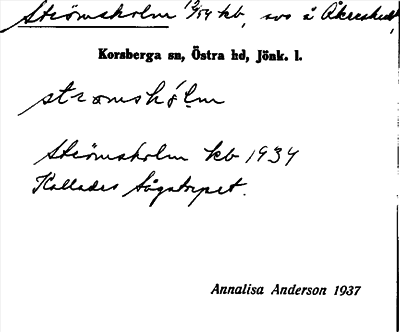 Strömsholm 13/54 kb, sos å Åkreshult,
Korsberga sn, Östra hd, Jönk. l.
stromshólm
Strömsholm kb 1934
Kallades Sågatorpet.
Annalisa Anderson 1937